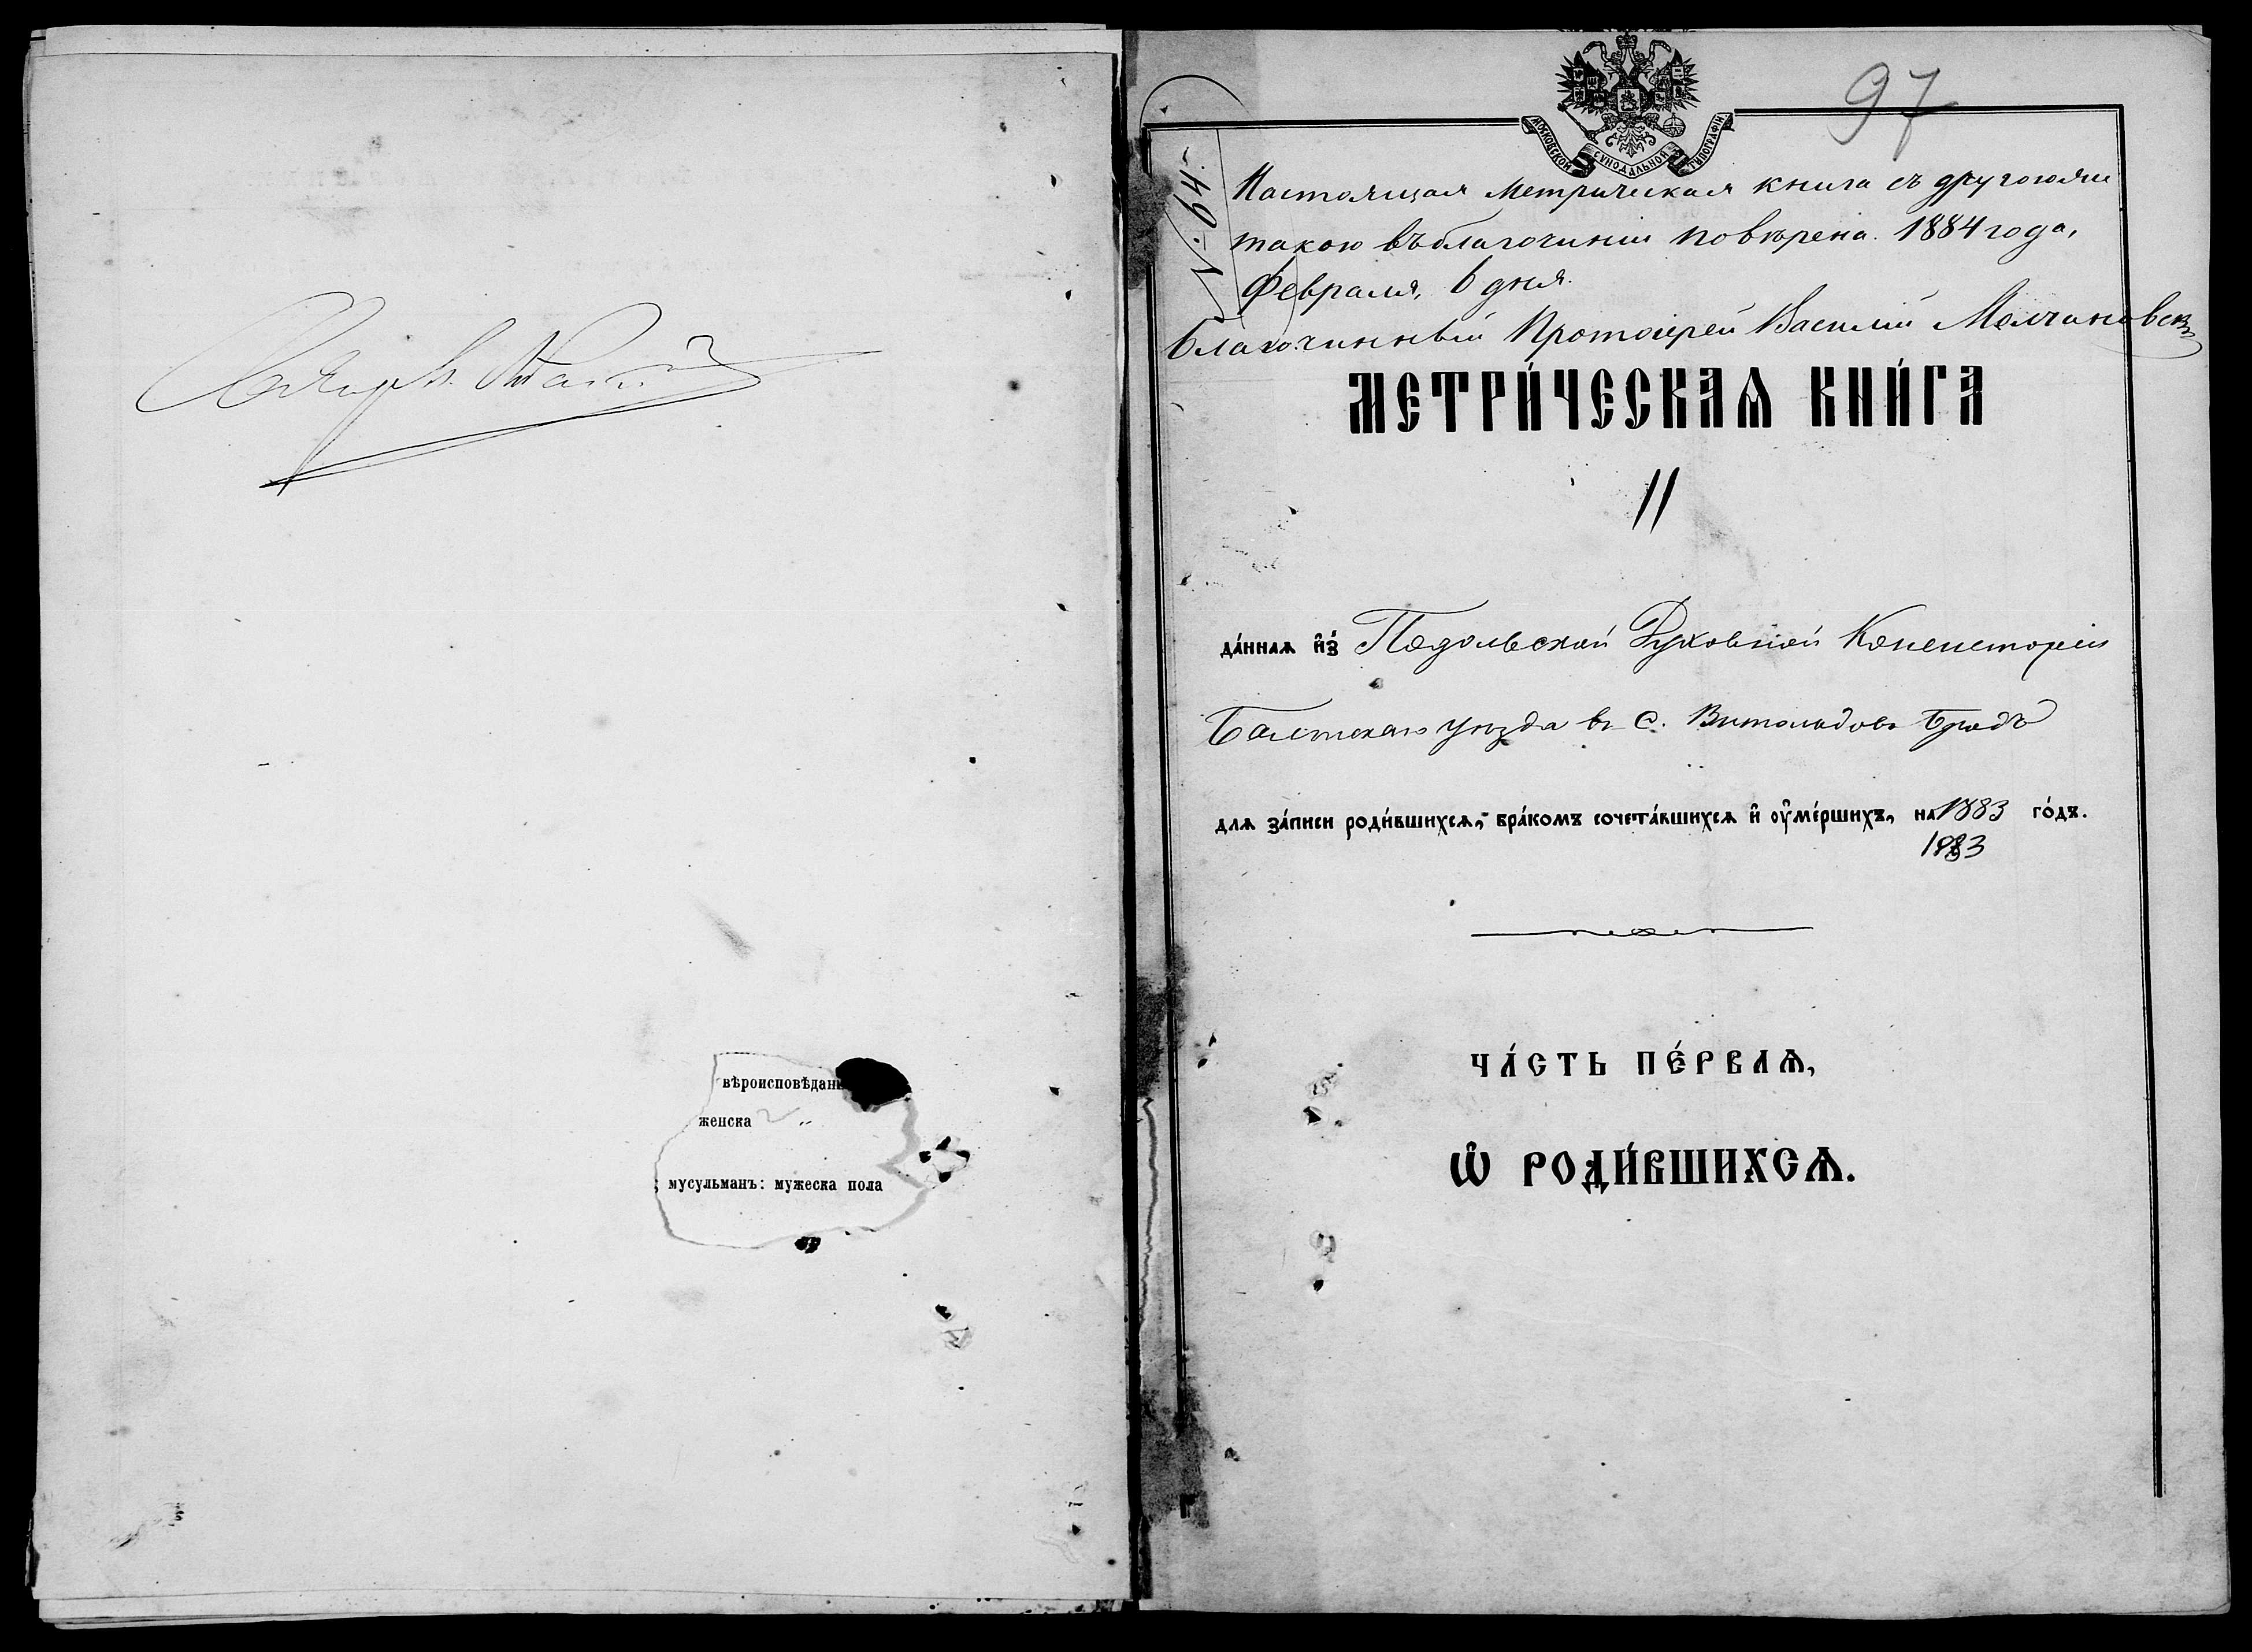 вѣроисповѣдані
женска „
; мусульманъ: мужеска пола
97
МОСКОВСКОЙ СУНОДАЛЬНОЙ ТИПОГРАФІИ
№ 64.
Настоящая метрическая книга съ другою
такою въ благочиніи повѣрена. 1884 года,
Февраля, 6 дня.
Благочинный Протоіерей Василій Молчановскій
МЕТРИ́ЧЕСКАѦ КНИ́ГА
//
да́ннаѧ и҆з̾ Подольской Духовной Консисторіи
Балтскаго уѣзда въ С. Витольдовъ Бродъ
для за́писи роди́вшихсѧ, бра́комъ сочета́вшихсѧ и҆ ᲂу҆ме́ршихъ, на 1883 го́дъ.
1883
ЧА́СТЬ ПЕ́РВАѦ,
Ѽ РОДИ́ВШИХСѦ.